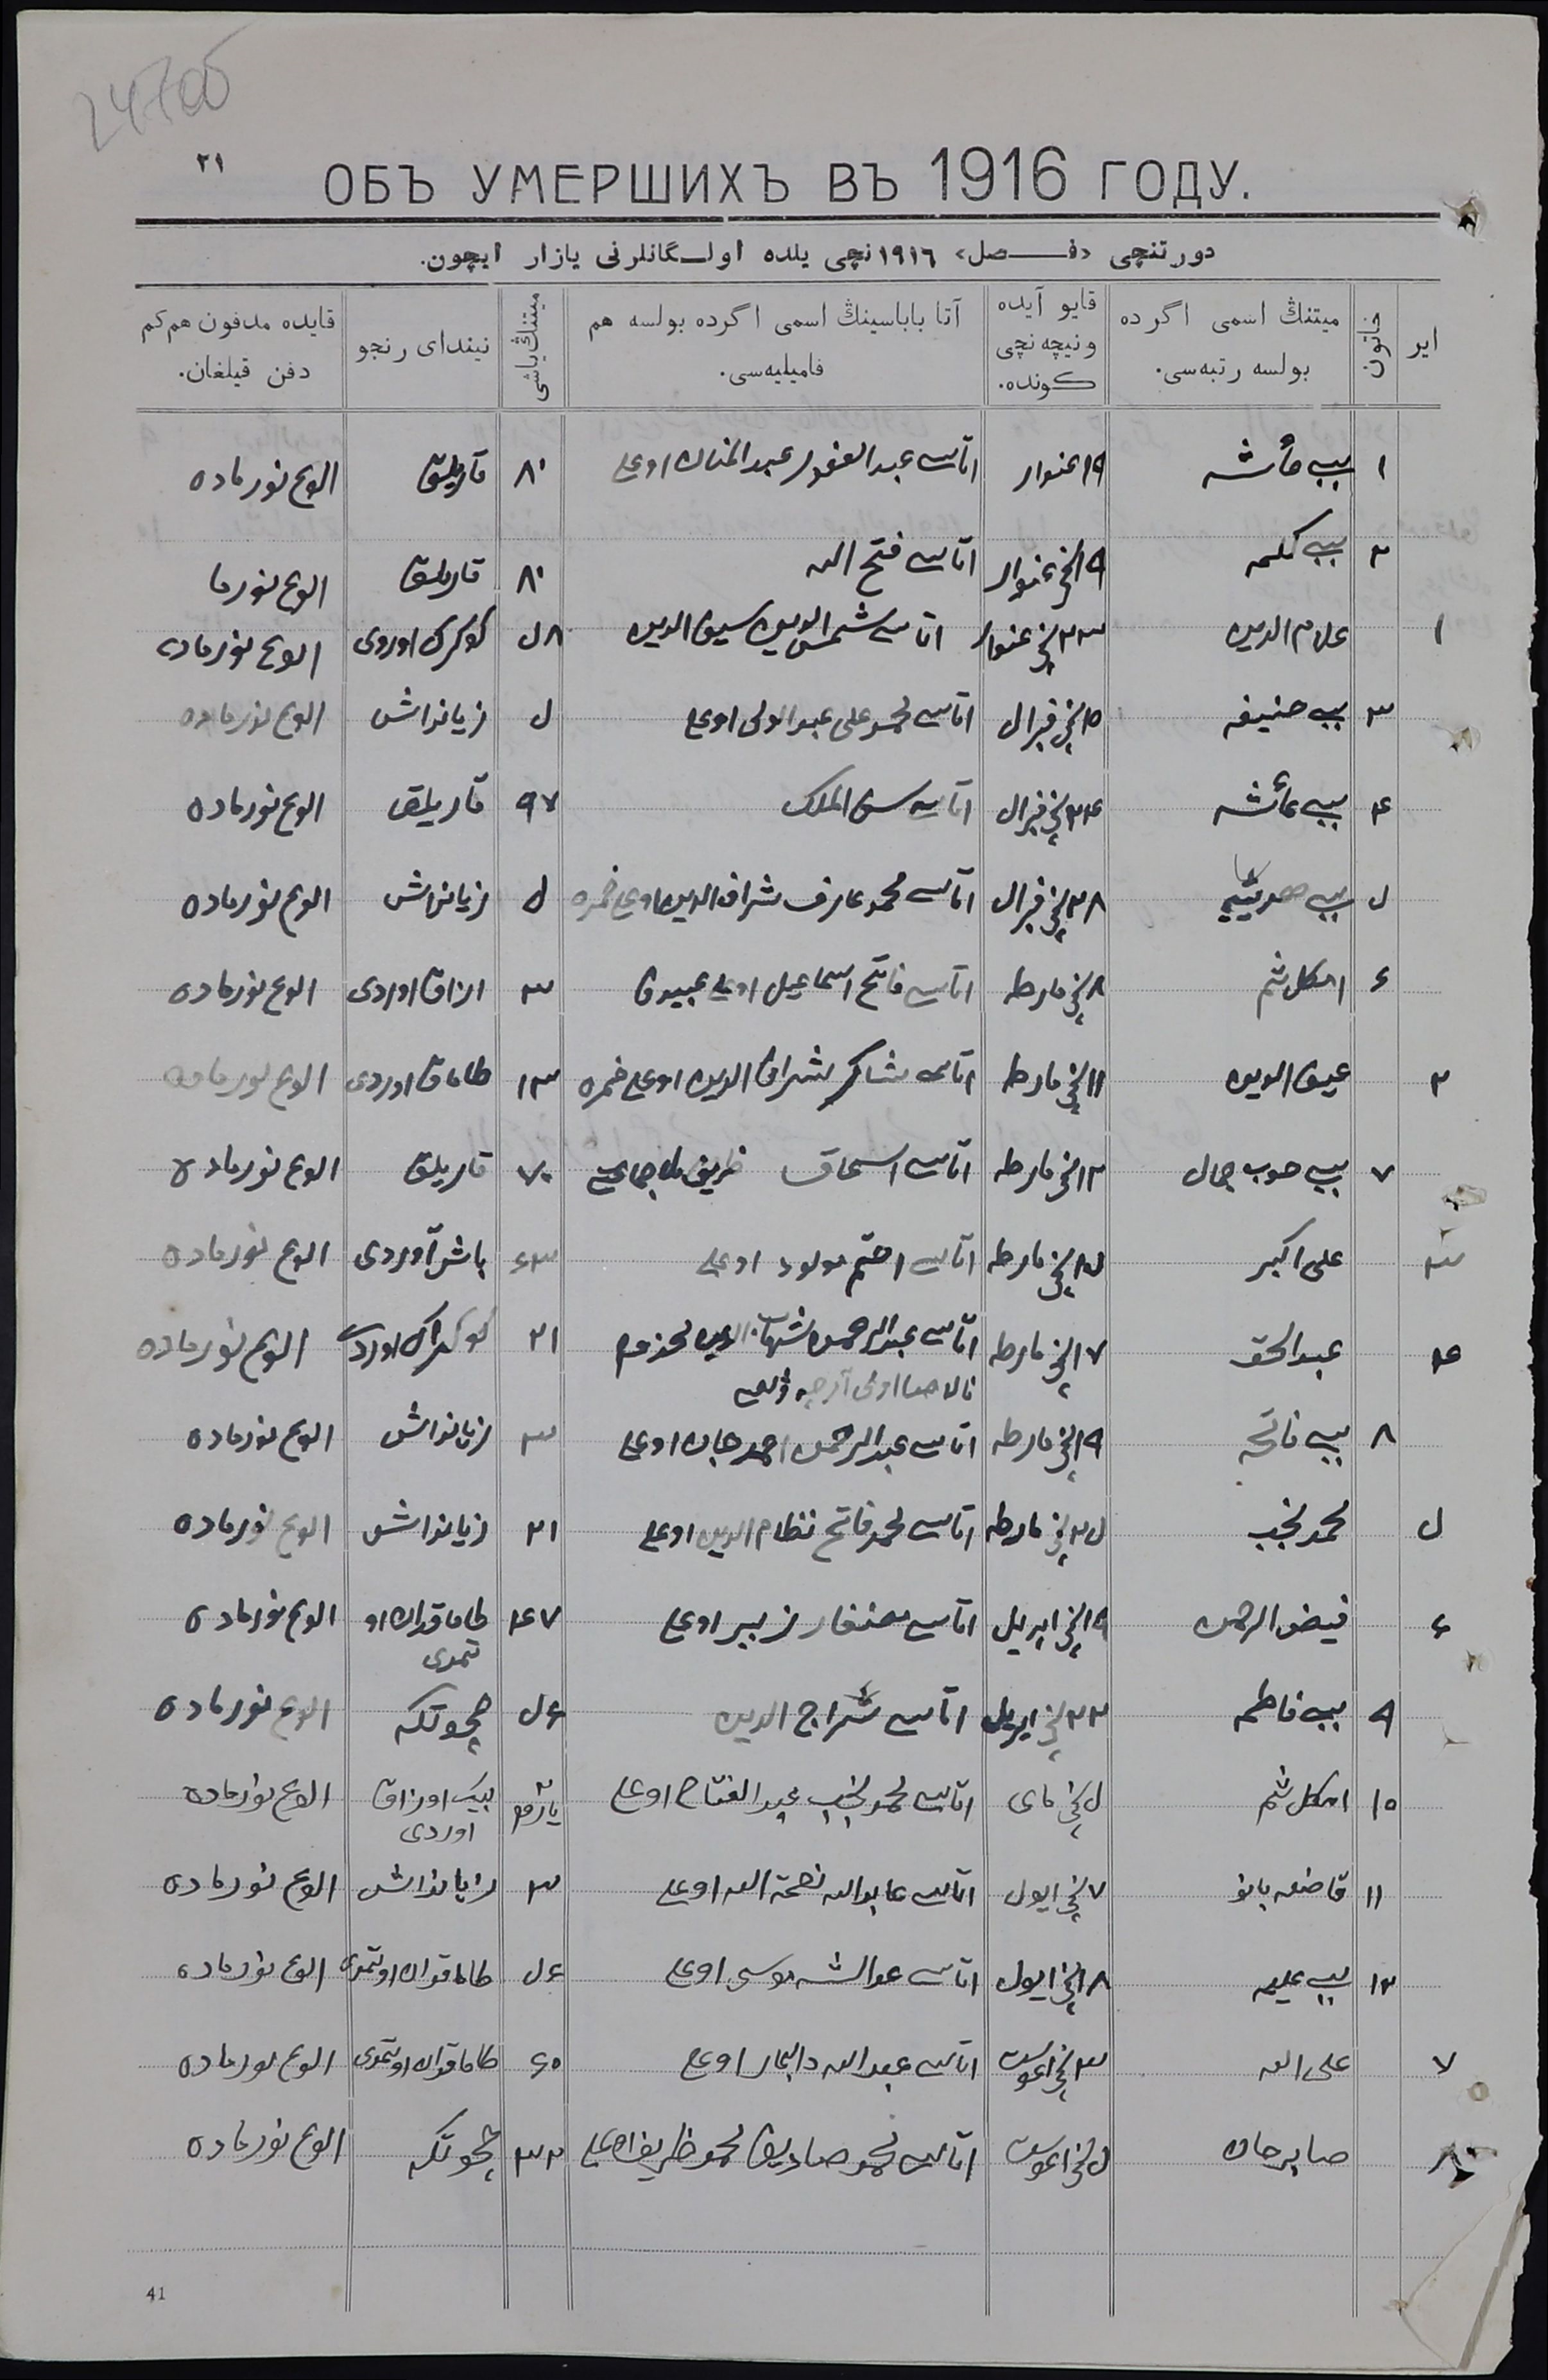 24700
٢١
ОБЪ УМЕРШИХЪ ВЪ 1916 ГОДУ.
دورتنچی «فـــصل» ١٩١٦نچی یلده اولـگانلرنی یازار ایچون.
ایر
خاتون
میتنڭ اسمی اگرده بولسه رتبه‌سی.
قایو آیده ونیچه نچی كونده.
آتا باباسینڭ اسمی اگرده بولسه هم فامیلیه‌سی.
میتنڭ یاشی
نیندای رنجو
قایده مدفون هم‌كم دفن قیلغان.
١ بیبی عائشه ١٩ غنوار اتاسی عبد الغفور عبد المنان اوغلی ٨٠ قاریلق الوغ نورماده
٢ بیبی كلمه ١٩نچی غنوار اتاسی فتح الله ٨٠ قاریلق الوغ نورما
١ علام الدین ٢٣نچی غنوار اتاسی شمس الدین سیف الدین ٥٨ كوكرك اوروی الوغ نورماده
٣ بیبی حنیفه ١٥نچی فبرال اتاسی محمد علی عبد الولی اوغلی ٥ زیانداش الوغ نورماده
٤ بیبی عائشه ٢٤نچی فبرال اتاسی الملك ٩٧ قاریلق الوغ نورماده
٥ بیبی ٢٨نچی فبرال اتاسی محمد عارف شراف الدین اوغلی حمزه ٥ زیانداش الوغ نورماده
٦ امكلثم ٨نچی مارطه اتاسی فاتح اسماعیل اوغلی عبیدف ٣ اوزاق اوردی الوغ نورماده
٢ عین الدین ١١نچی مارطه اتاسی شاكر شراف الدین اوغلی حمزه ١٣ طاماق اوردی الوغ نورماده
٧ بیبی حوب جمال ١٢نچی مارطه اتاسی اسحاق ٧٠ قاریلق الوغ نورماده
٣ علی اكبر ١٥نچی مارطه اتاسی احتم مولود اوغلی ٦٣ باش آوردی الوغ نورماده
٤ عبد الحق ١٧نچی مارطه اتاسی عبد الرحمن شهاب الدین مخذوم ٢١ كوكراك اوردی الوغ نورماده
٨ بیبی فاتحه ١٩نچی مارطه اتاسی عبد الرحمن احمد جان اوغلی ٣ زیانداش الوغ نورماده
٥ محمد نجیب ٢٥نچی مارطه اتاسی محمد فاتح نظام الدین اوغلی ٢١ زیانداش الوغ نورماده
٦ فیض الرحمن ١٩نچی اپریل اتاسی مصنفار زبیر اوغلی ٤٧ طاماقدان او تمدی الوغ نورماده
٩ بیبی فاطمه ٢٢نچی اپریل اتاسی شراج الدین ٤٥ چحوتكه الوغ نورماده
١٠ امكلثم ٥نچی مای اتاسی محمد نجیب عبد الفتاح اوغلی ٢ یارم بیك اوزاق اوردی الوغ نورماده
١١ قاضیه بانو ٧نچی ایول اتاسی عابد الله نعمة الله اوغلی ٣ زیانداش الوغ نورماده
١٢ بیبی علیمه ١٨نچی ایول اتاسی موسی اوغلی ٤٥ طاماقدان اوتمدی الوغ نورماده
٧ علی الله ٣نچی اغوس اتاسی عبد الله اوغلی ٦٥ طاماقدان اوتمدی الوغ نورماده
٨ صابر جان ٥نچی اغوس اتاسی محمد صادیق محمد ظریف اوغلی ٣٢ چحوتكه الوغ نورماده
41